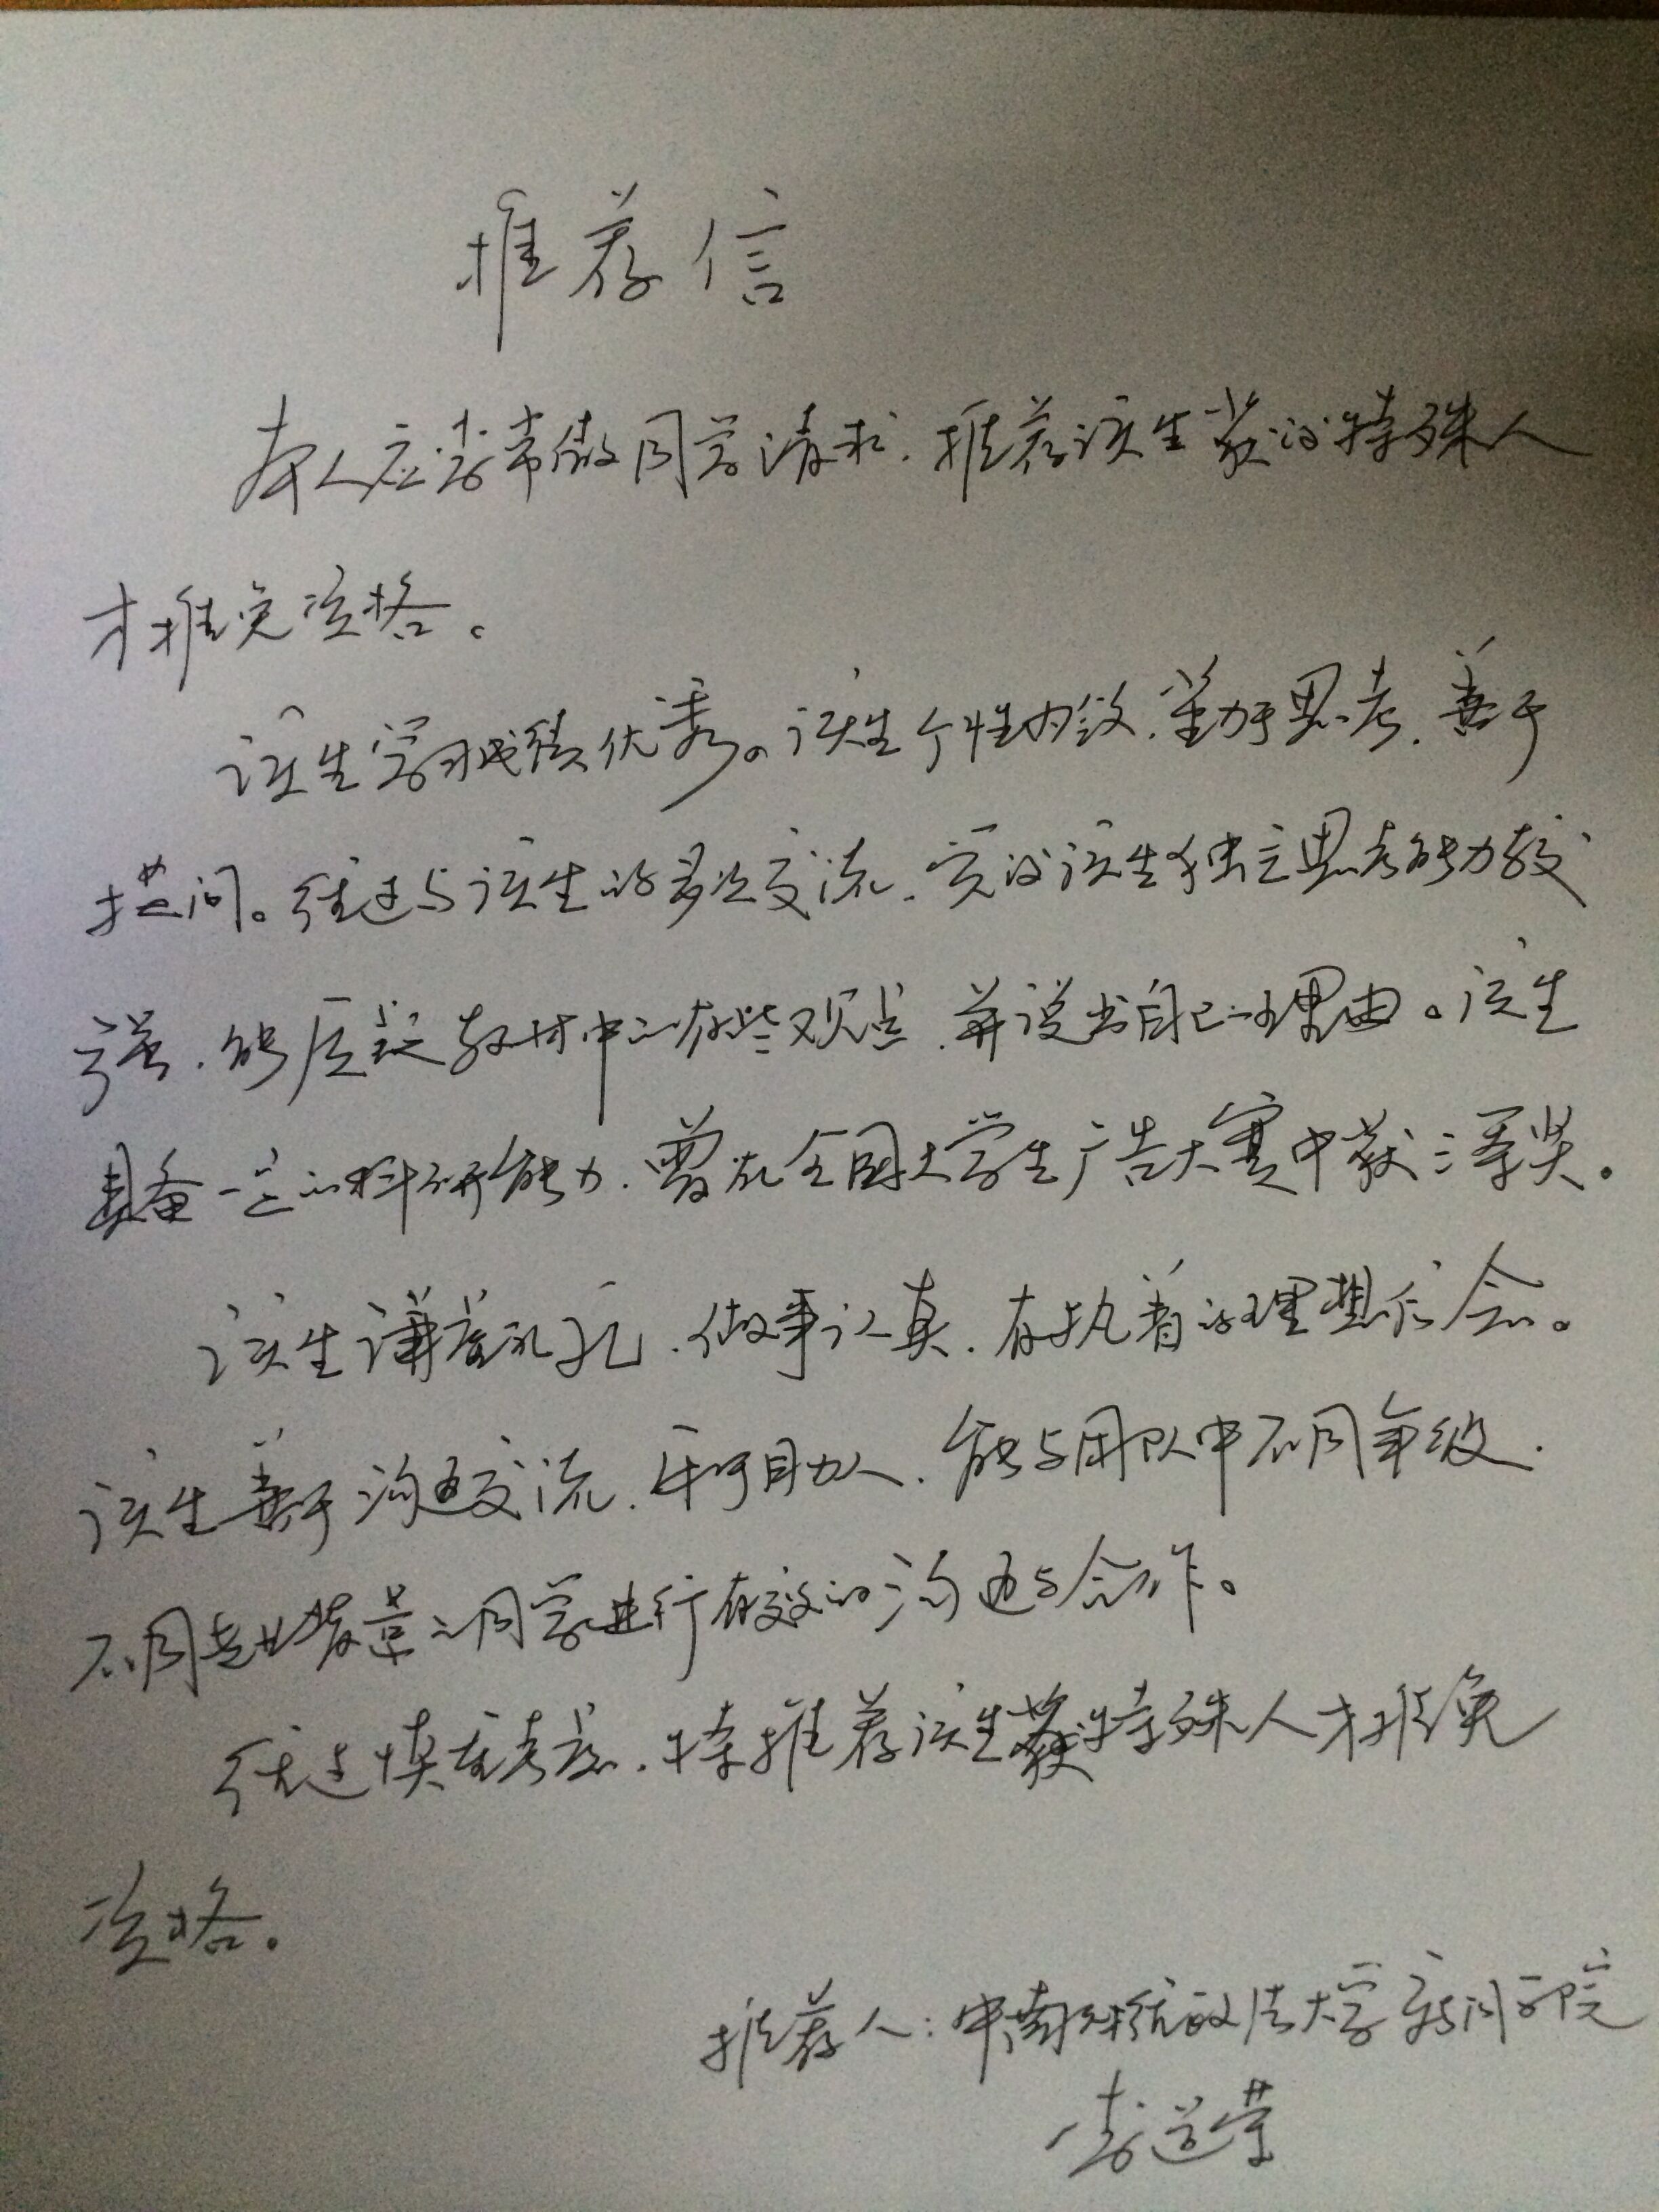 推荐信
本人应李常微同学请求，推荐该生获得特殊人
才推免资格。
该生学习成绩优秀。该生个性内敛，勤于思考，善于
提问。经过与该生的多次交流，觉得该生独立思考能力较
强，能质疑教材中的有些观点，并说出自己的理由。该生
具备一定的科研能力，曾在全国大学生广告大赛中获三等奖。
该生谦虚礼貌，做事认真，有执着的理想信念。
该生善于沟通交流，乐于助人，能与团队中不同年级，
不同专业背景的同学进行有效的沟通与合作。
经过慎重考虑，特推荐该生获特殊人才推免
资格。
推荐人：中南财经政法大学新闻学院
李道荣